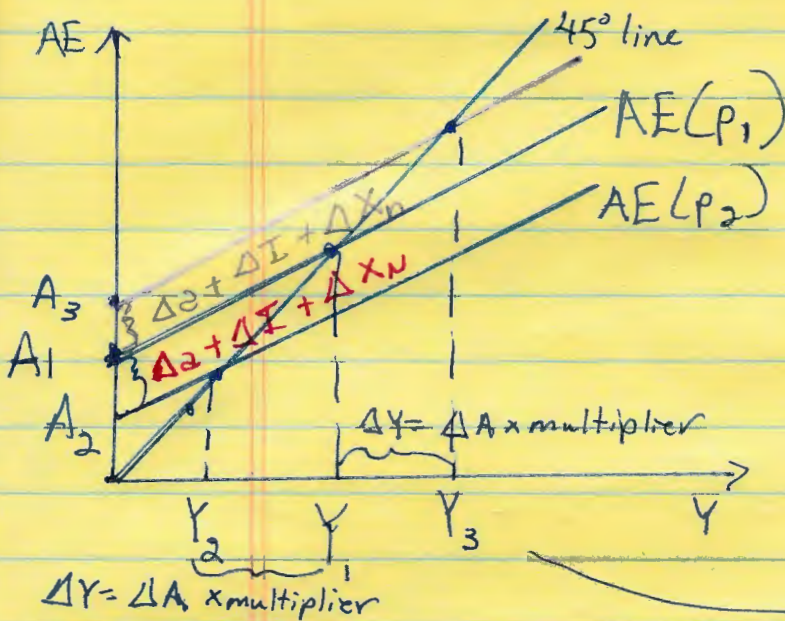 AE
45° line
AE(p₁)
AE(p₂)
Δa + ΔI + ΔXn
A₃
A₁
Δa + ΔI + ΔXN
A₂
ΔY = ΔA x multiplier
Y₂ Y₁ Y₃ Y
ΔY = ΔA x multiplier